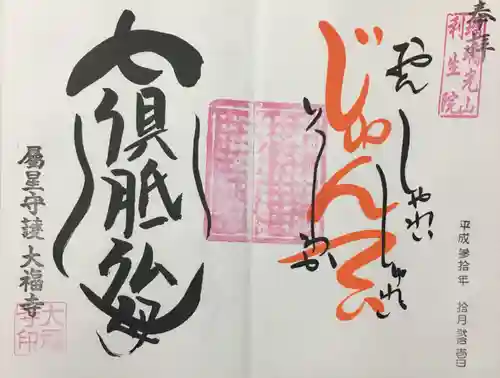 奉拝
瑠璃光山
利生院
おん
しゃれい
しゅれい
じゅんてい
平成参拾年 拾月
七倶胝仏母
属星守護 大福寺
大福
寺印